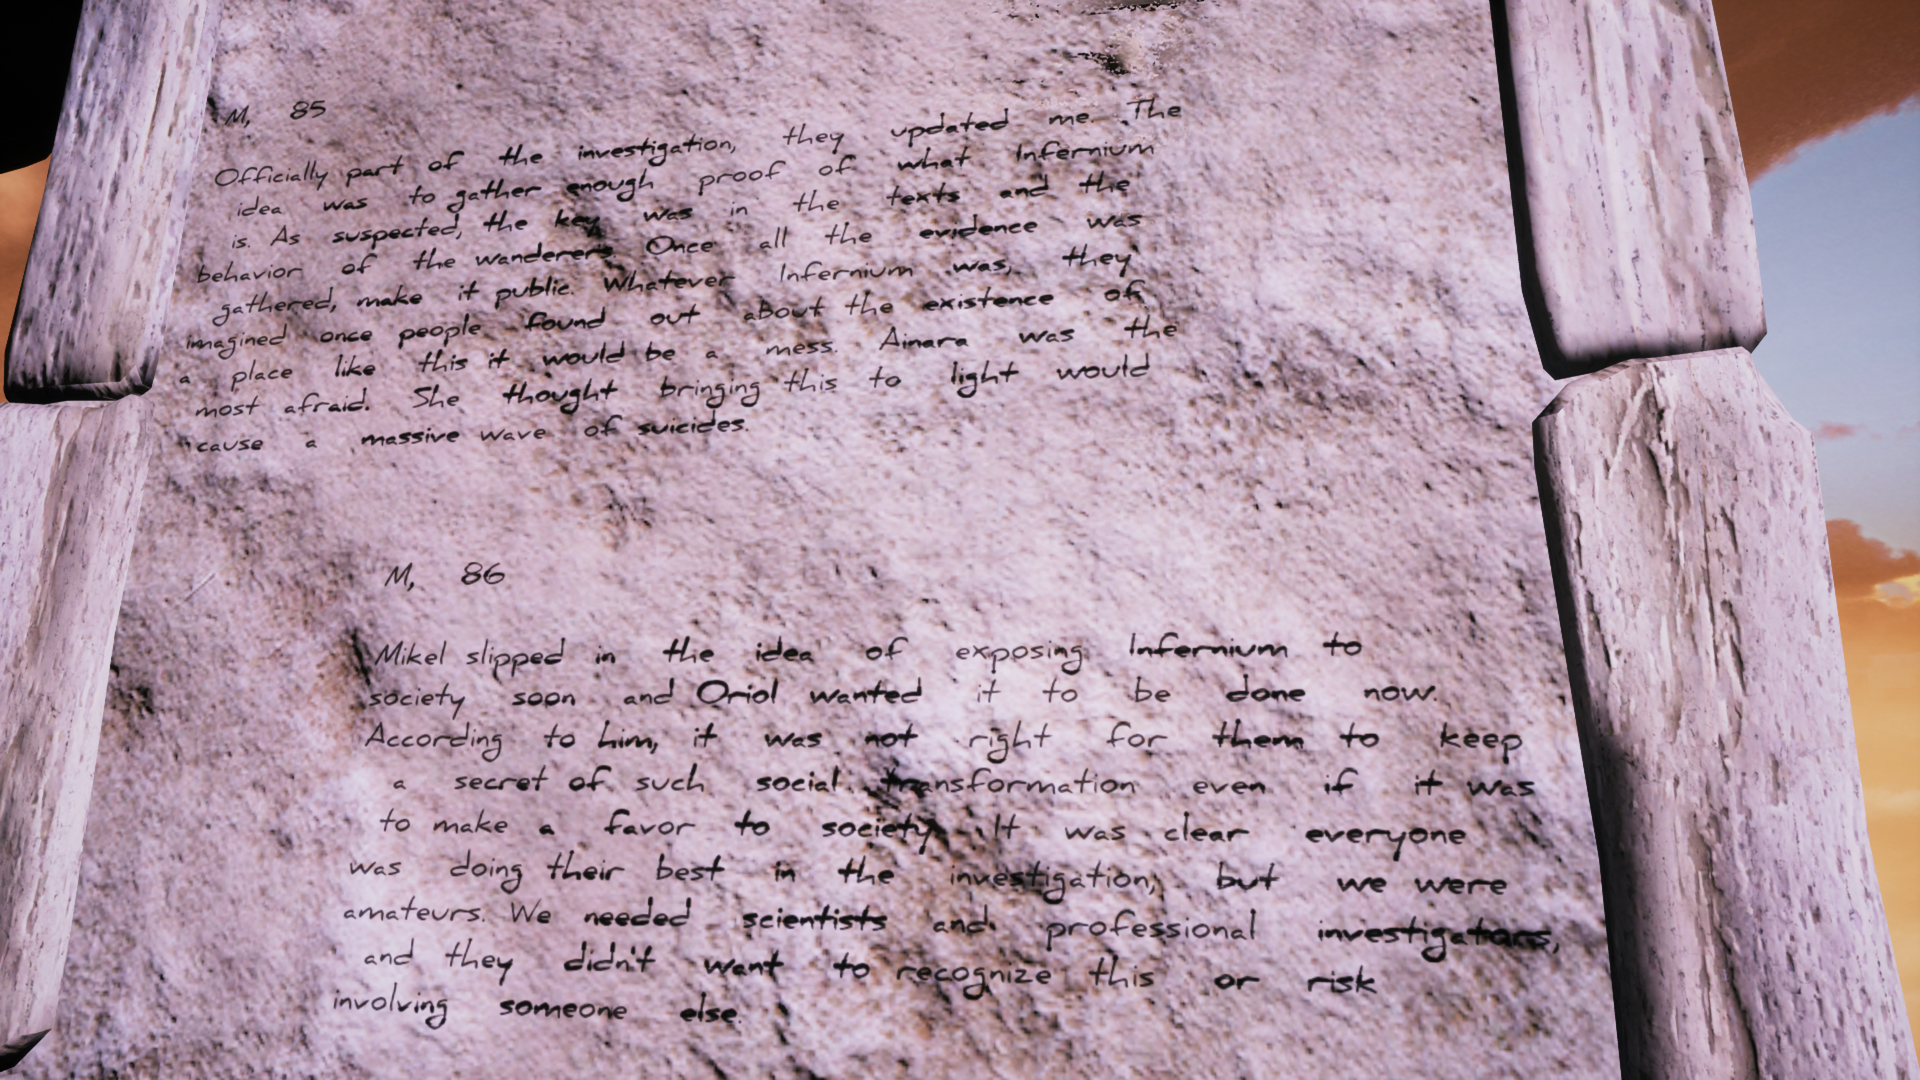 M, 85
Officially part of the investigation, they updated me. The
idea was to gather enough proof of what Infernium
is. As suspected, the key was in the texts and the
behavior of the wanderers. Once all the evidence was
gathered, make it public. Whatever Infernium was, they
imagined once people found out about the existence of
a place like this it would be a mess. Ainara was the
most afraid. She thought bringing this to light would
cause a massive wave of suicides.
M, 86
Mikel slipped in the idea of exposing Infernium to
society soon and Oriol wanted it to be done now.
According to him, it was not right for them to keep
a secret of such social transformation even if it was
to make a favor to society. It was clear everyone
was doing their best in the investigation, but we were
amateurs. We needed scientists and professional investigators,
and they didn't want to recognize this or risk
involving someone else.